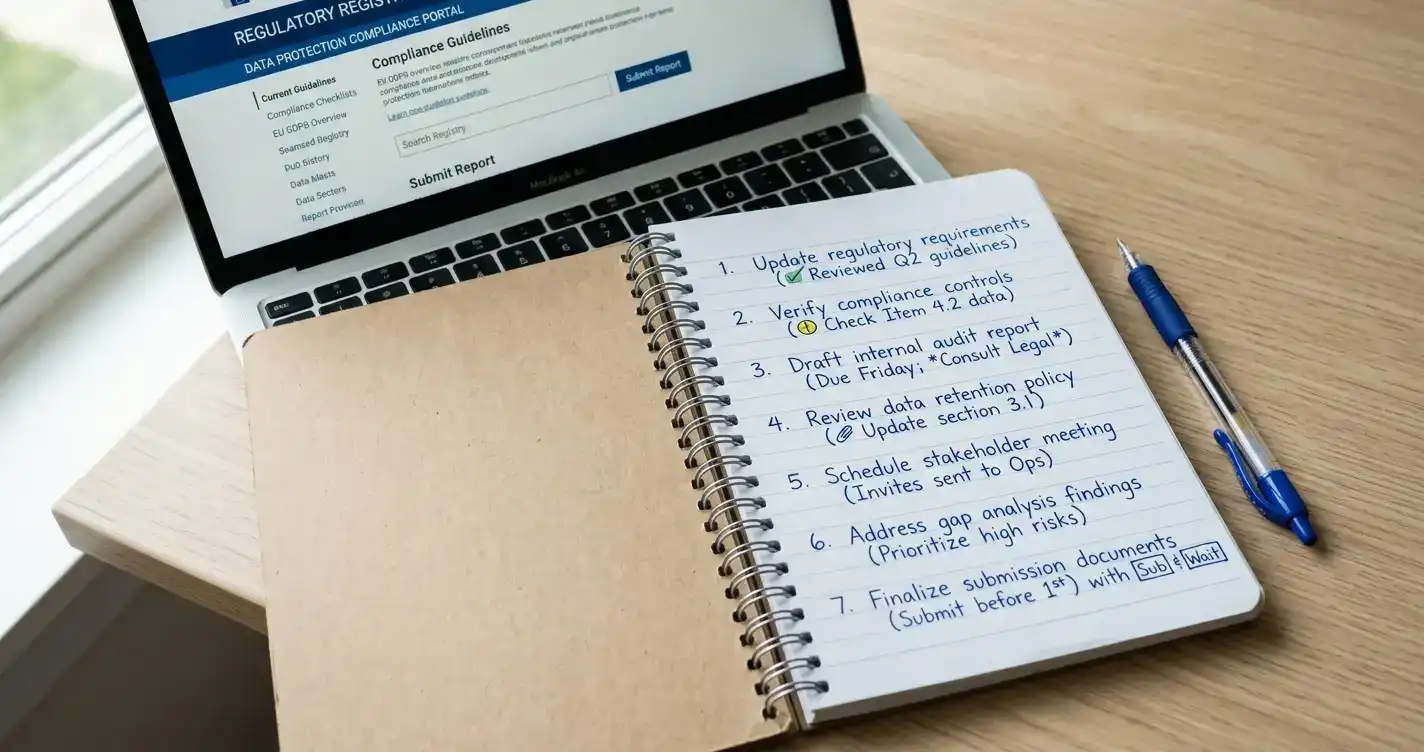 REGULATORY REGISTR
DATA PROTECTION COMPLIANCE PORTAL
Current Guidelines
Compliance Checklists
EU GOPB Overview
Seamsed Registry
Data Masts
Data Secters
Report Provisen
Compliance Guidelines
EU GOPB overview
compliance
protection
Submit Report
Search Registry
Submit Report
MacBook Air
1. Update regulatory requirements
(✓ Reviewed Q2 guidelines)
2. Verify compliance controls
(+ Check Item 4.2 data)
3. Draft internal audit report
(Due Friday; *Consult Legal*)
4. Review data retention policy
(📎 Update section 3.1)
5. Schedule stakeholder meeting
(Invites sent to Ops)
6. Address gap analysis findings
(Prioritize high risks)
7. Finalize submission documents
(Submit before 1st) with Sub & Wait